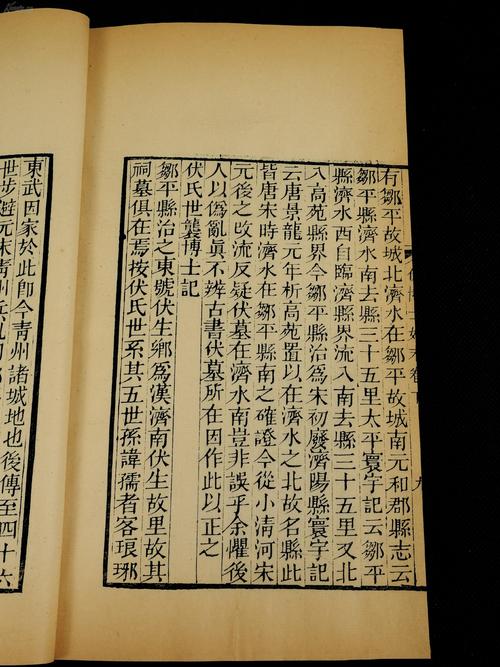 有鄒平故城北濟水在鄒平故城南元和郡縣志云
鄒平縣濟水南去縣三十五里太平寰宇記云鄒平
縣濟水西自臨濟縣界流入南去縣三十五里又北
入高苑縣界今鄒平縣治為宋初廢濟陽縣寰宇記
云唐景龍元年析高苑置以在濟水之北故名縣此
皆唐宋時濟水在鄒平縣南之確證今從小清河宋
元後之改流反疑伏墓在濟水南豈非誤乎余懼後
人以偽亂眞不辨古書伏墓所在因作此以正之
伏氏世襲博士記
鄒平縣治之東號伏生鄉為漢濟南伏生故里故其
祠墓俱在焉按伏氏世系其五世孫諱孺者客琅琊
東武因家於此即今青州諸城地也後傳至四十六
世步避元末青州兵